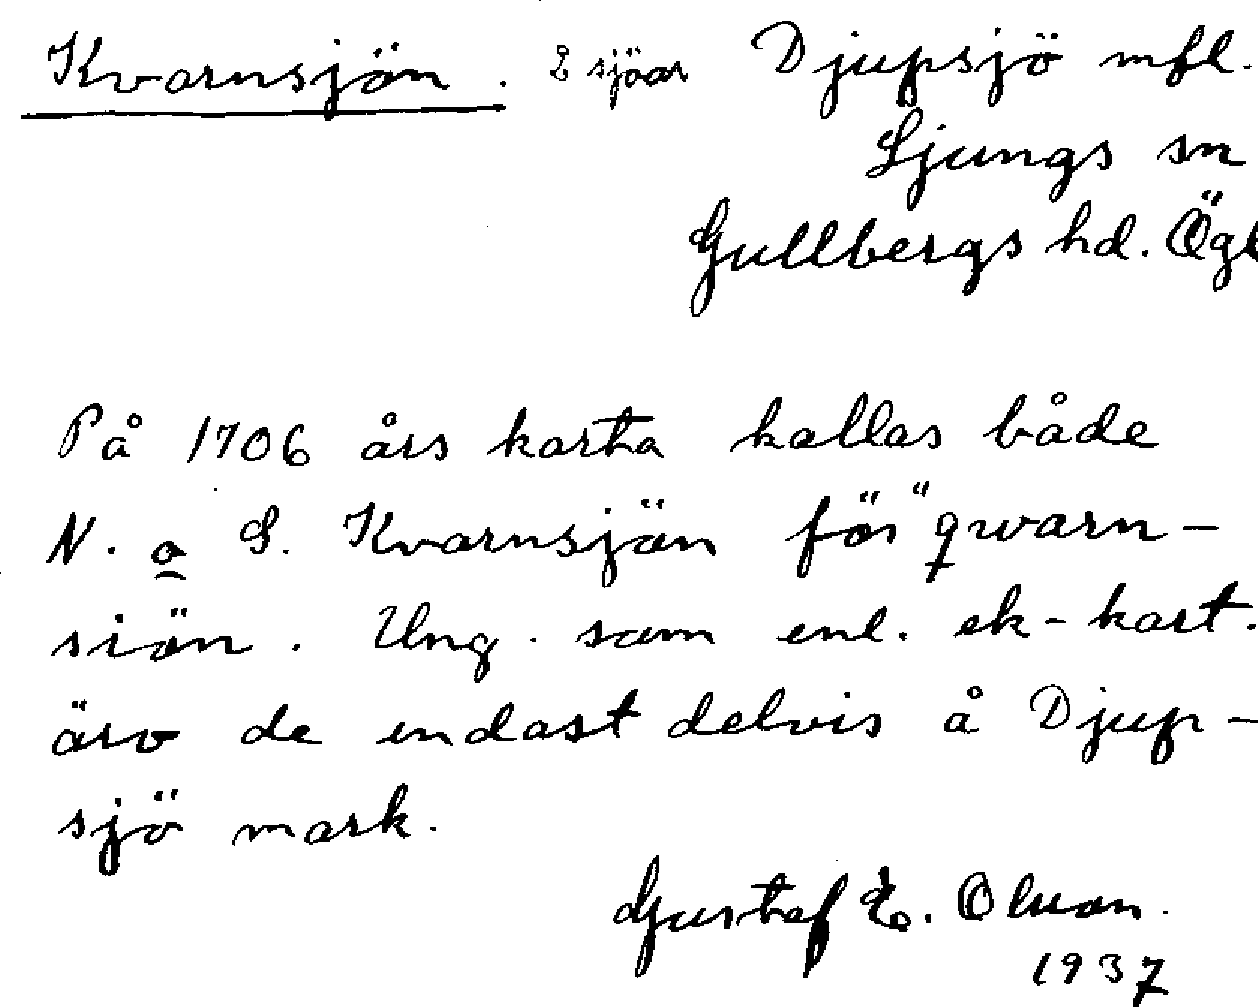 Kvarnsjön. 2 sjöar Djupsjö mfl.
Ljungs sn
Gullbergs hd. Ögl
På 1706 års karta kallas både
N. o S. Kvarnsjön för "qwarn-
siön. Ung. som enl. ek-kart.
äro de endast delvis å Djup-
sjö mark.
Gustaf E. Olsson.
1937